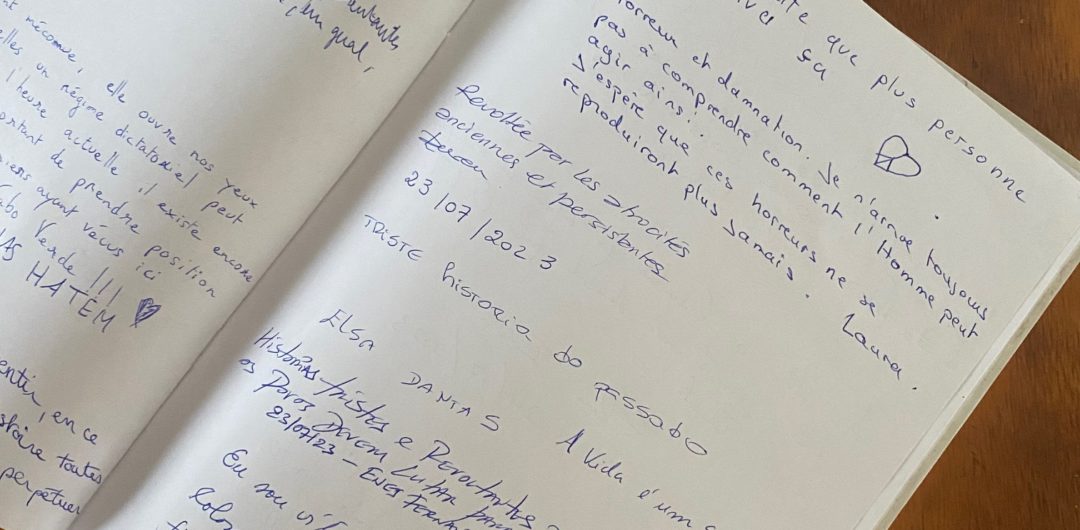 autants
qual,
méconnue, elle ouvre nos yeux
elles un régime dictatorial peut
l'heure actuelle il existe encore
de prendre position
ayant vécus ici
Verde !!!
HATEM
entir, en ce
toutes
perpétuer
que plus personne
sa
horreur et damnation. Je n'arrive toujours
pas à comprendre comment l'Homme peut
agir ainsi.
J'espère que ces horreurs ne se
reproduiront plus jamais.
Laura.
Révoltée par les atrocités
anciennes et persistantes
23/07/2023
TRISTE historia do PASSADO
ELSA DANTAS
Histórias tristes e Revoltantes
os Povos Devem Lutar
23/07/23 - 
A Vida é um
Eu sou